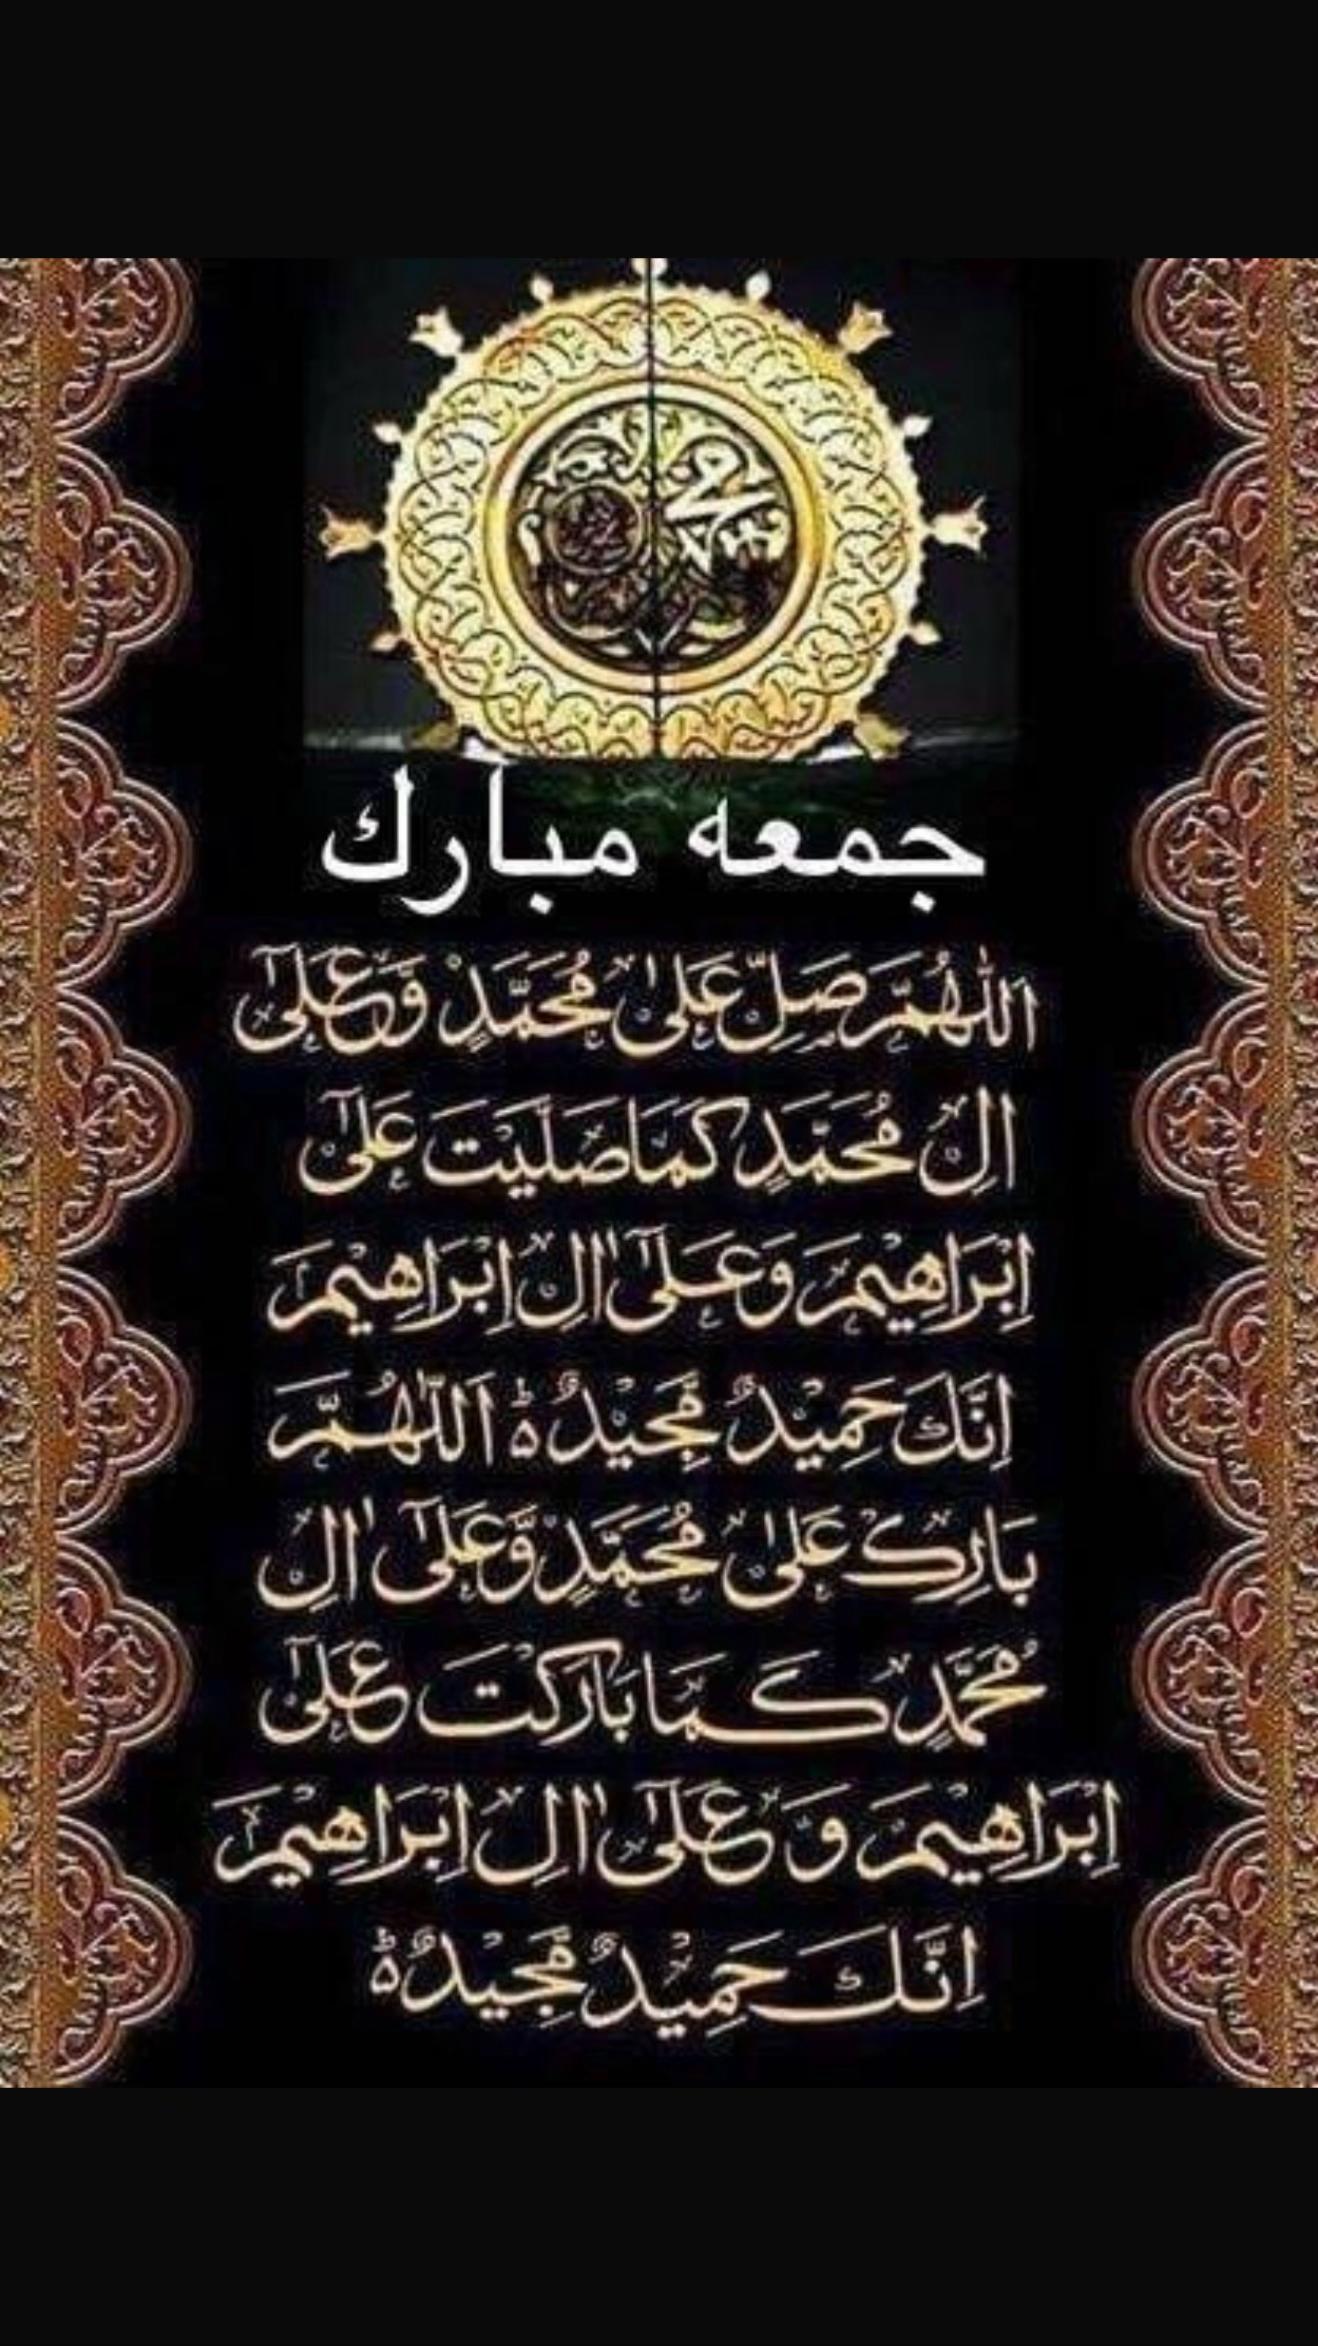 محمد
جمعه مبارك
اَللّٰهُمَّ صَلِّ عَلٰى مُحَمَّدٍ وَّعَلٰٓى
اٰلِ مُحَمَّدٍ كَمَا صَلَّيْتَ عَلٰٓى
اِبْرَاهِيْمَ وَعَلٰٓى اٰلِ اِبْرَاهِيْمَ
اِنَّكَ حَمِيْدٌ مَّجِيْدٌ ؕ اَللّٰهُمَّ
بَارِكْ عَلٰى مُحَمَّدٍ وَّعَلٰٓى اٰلِ
مُحَمَّدٍ كَمَا بَارَكْتَ عَلٰٓى
اِبْرَاهِيْمَ وَ عَلٰٓى اٰلِ اِبْرَاهِيْمَ
اِنَّكَ حَمِيْدٌ مَّجِيْدٌ ؕ